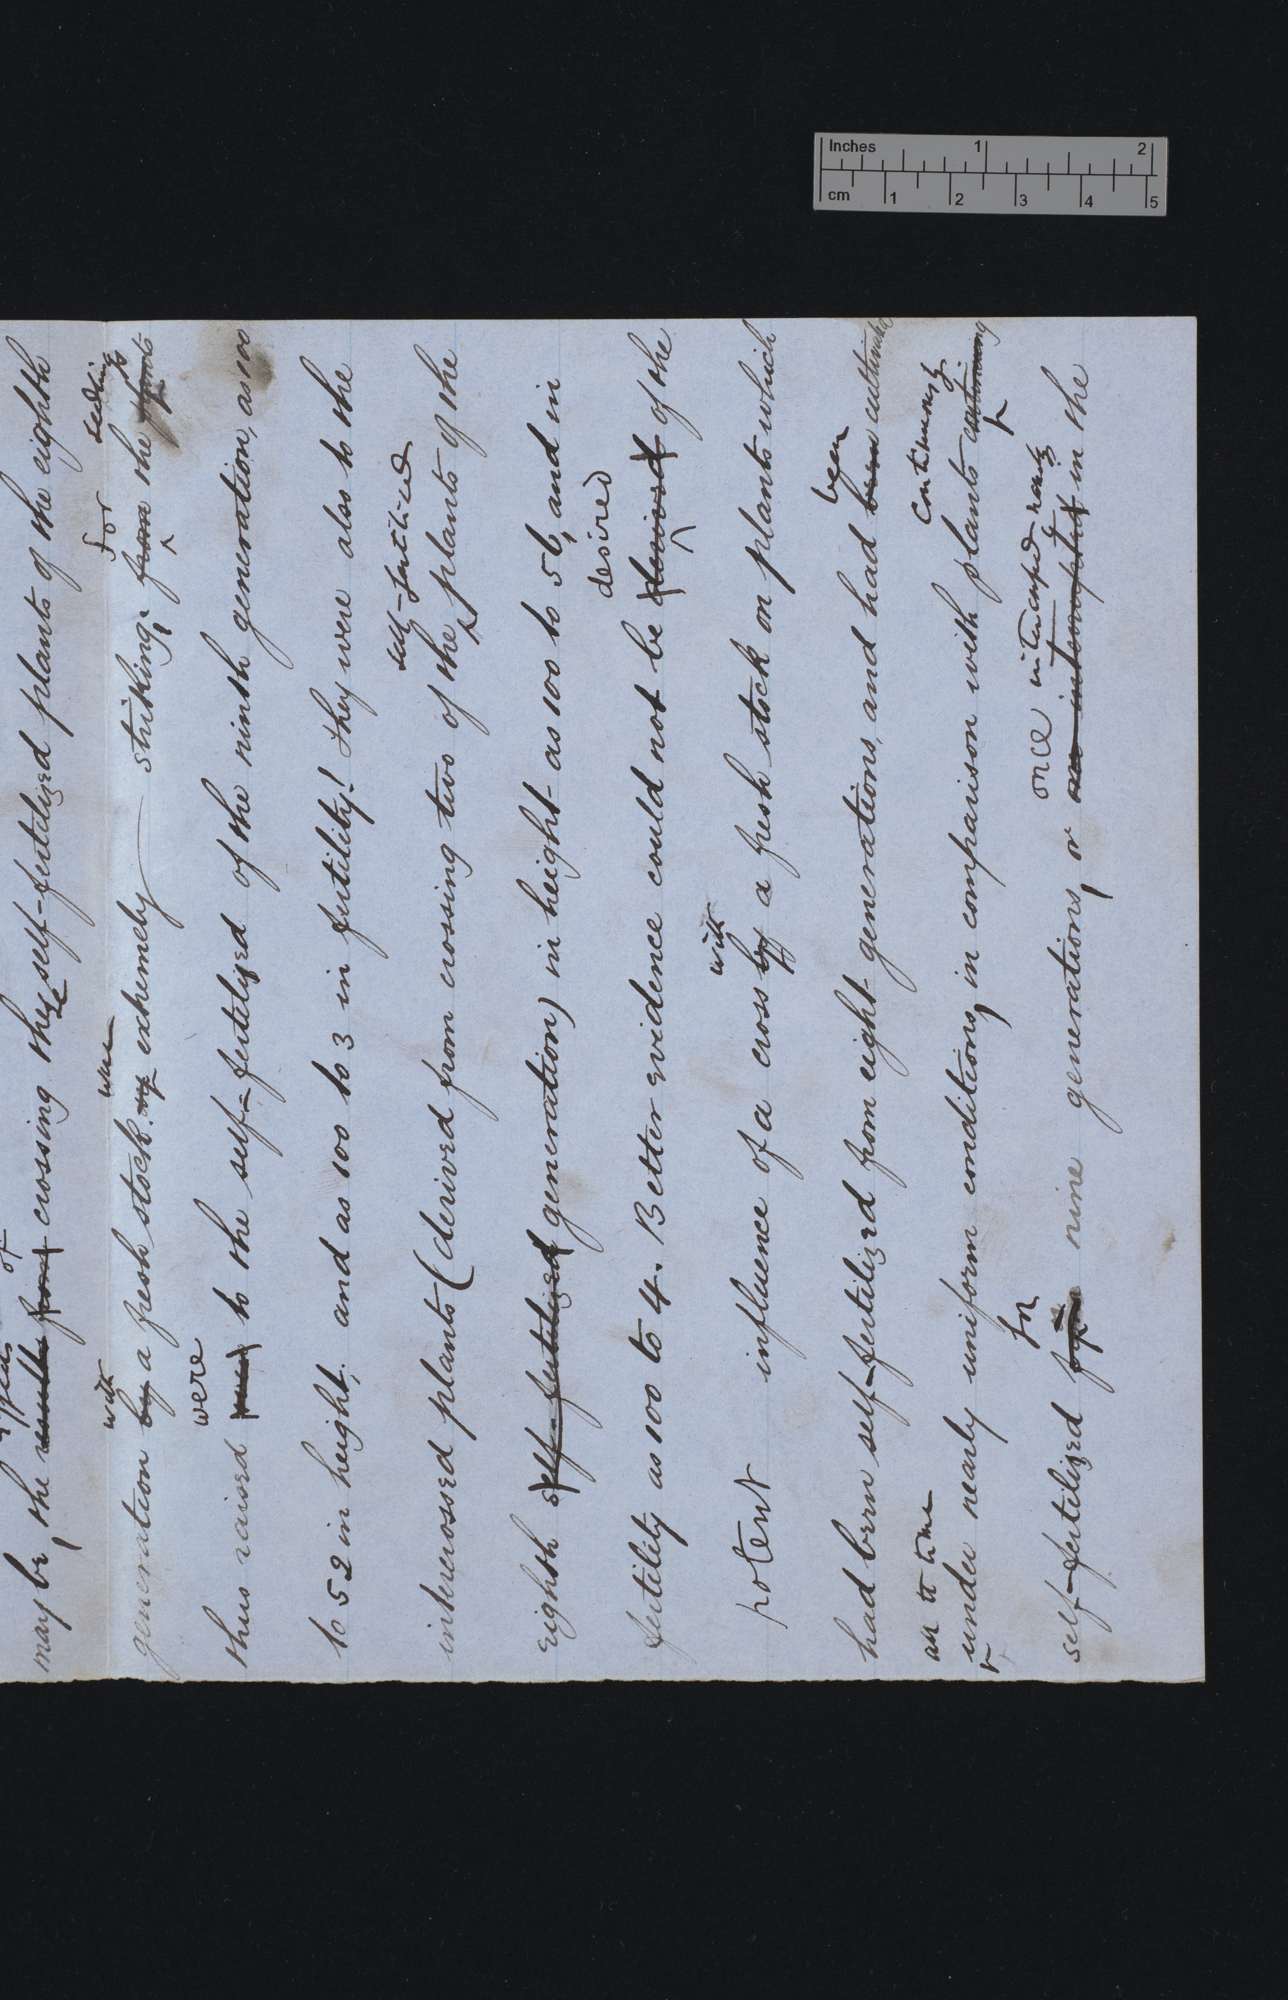 Inches 1 2
cm 1 2 3 4 5
effects of
may be, the results from crossing these self-fertilized plants of the eighth
with was for seedlings
generation by a fresh stock. extremely striking; from the
were
thus raised were to the self-fertilized of the ninth generation, as 100
to 52 in height, and as 100 to 3 in fertility! they were also to the
self-fertilized
intercrossed plants (derived from crossing two of the plants of the
eighth self-fertilized generation) in height as 100 to 56, and in
desired
fertility as 100 to 4. Better evidence could not be desired of the
with
potent influence of a cross by a fresh stock on plants which
been
had been self-fertilized from eight generations, and had been cultivated
all the time continuously
under nearly uniform conditions, in comparison with plants continuously
for once intercrossed
self-fertilized for nine generations, or in the